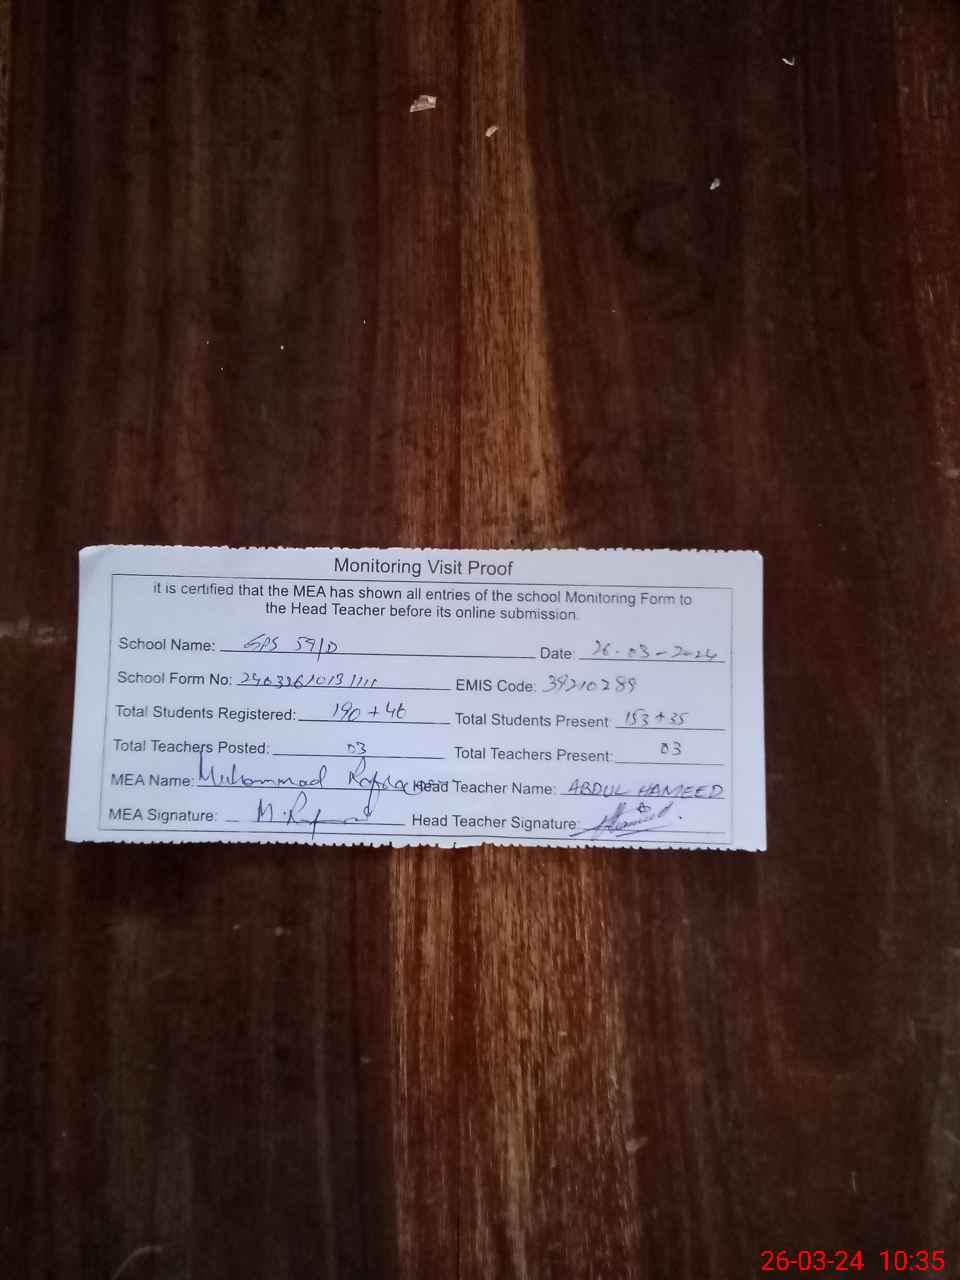 Monitoring Visit Proof
it is certified that the MEA has shown all entries of the school Monitoring Form to
the Head Teacher before its online submission.
School Name: GPS 59/D Date: 26-03-2024
School Form No: EMIS Code: 39210289
Total Students Registered: 190+46 Total Students Present: 153+35
Total Teachers Posted: 03 Total Teachers Present: 03
MEA Name: Muhammad Head Teacher Name: ABDUL HAMEED
MEA Signature: Head Teacher Signature:
26-03-24 10:35